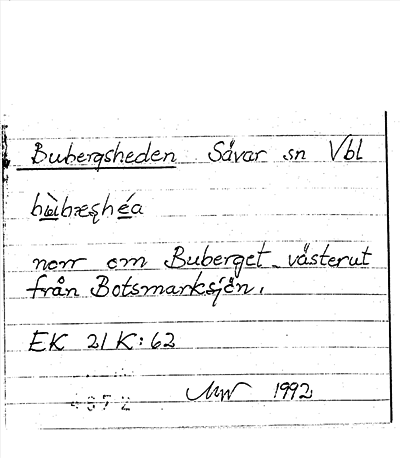 Bubergsheden Sävar sn Vbl
norr om Buberget västerut
från Botsmarksjön.
EK 21 K:62
1992